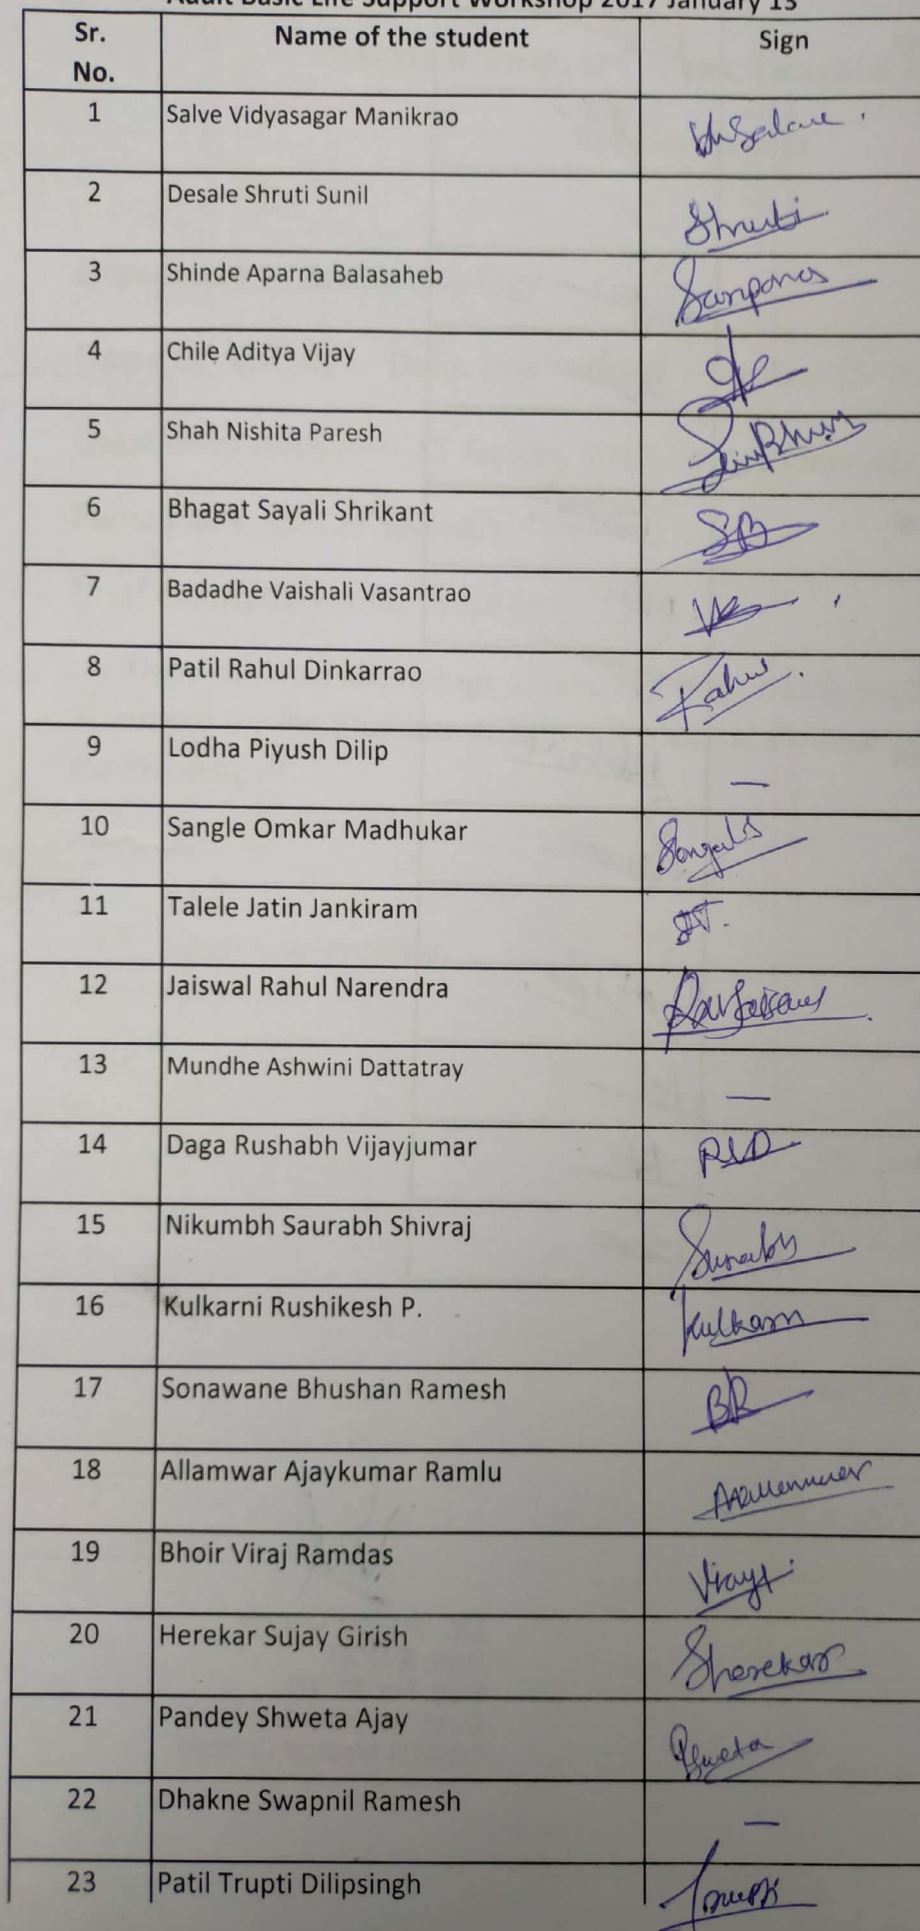 Adult Basic Life Support Workshop 2017 January 13
Sr. No. Name of the student Sign
1 Salve Vidyasagar Manikrao
2 Desale Shruti Sunil Shruti
3 Shinde Aparna Balasaheb
4 Chile Aditya Vijay
5 Shah Nishita Paresh
6 Bhagat Sayali Shrikant SB
7 Badadhe Vaishali Vasantrao
8 Patil Rahul Dinkarrao Rahul
9 Lodha Piyush Dilip —
10 Sangle Omkar Madhukar
11 Talele Jatin Jankiram
12 Jaiswal Rahul Narendra
13 Mundhe Ashwini Dattatray —
14 Daga Rushabh Vijayjumar
15 Nikumbh Saurabh Shivraj
16 Kulkarni Rushikesh P.
17 Sonawane Bhushan Ramesh BR
18 Allamwar Ajaykumar Ramlu
19 Bhoir Viraj Ramdas
20 Herekar Sujay Girish Sherekar
21 Pandey Shweta Ajay
22 Dhakne Swapnil Ramesh —
23 Patil Trupti Dilipsingh